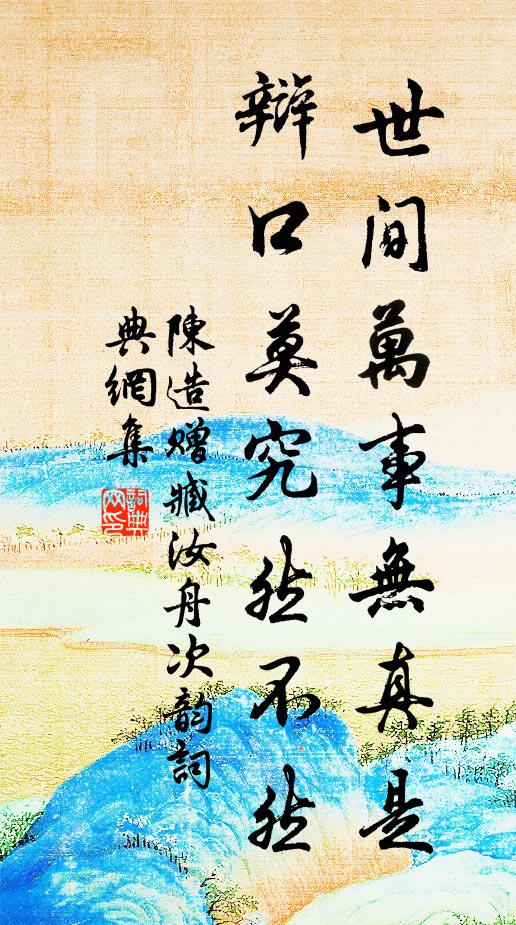 世間萬事無真是
辯口莫究然不然
陳造贈臧汝舟次韵詞
典網集
詞典網印